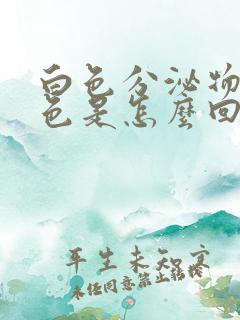 白色分泌物
色是怎麼回
平生未知寒
未经同意禁止转载